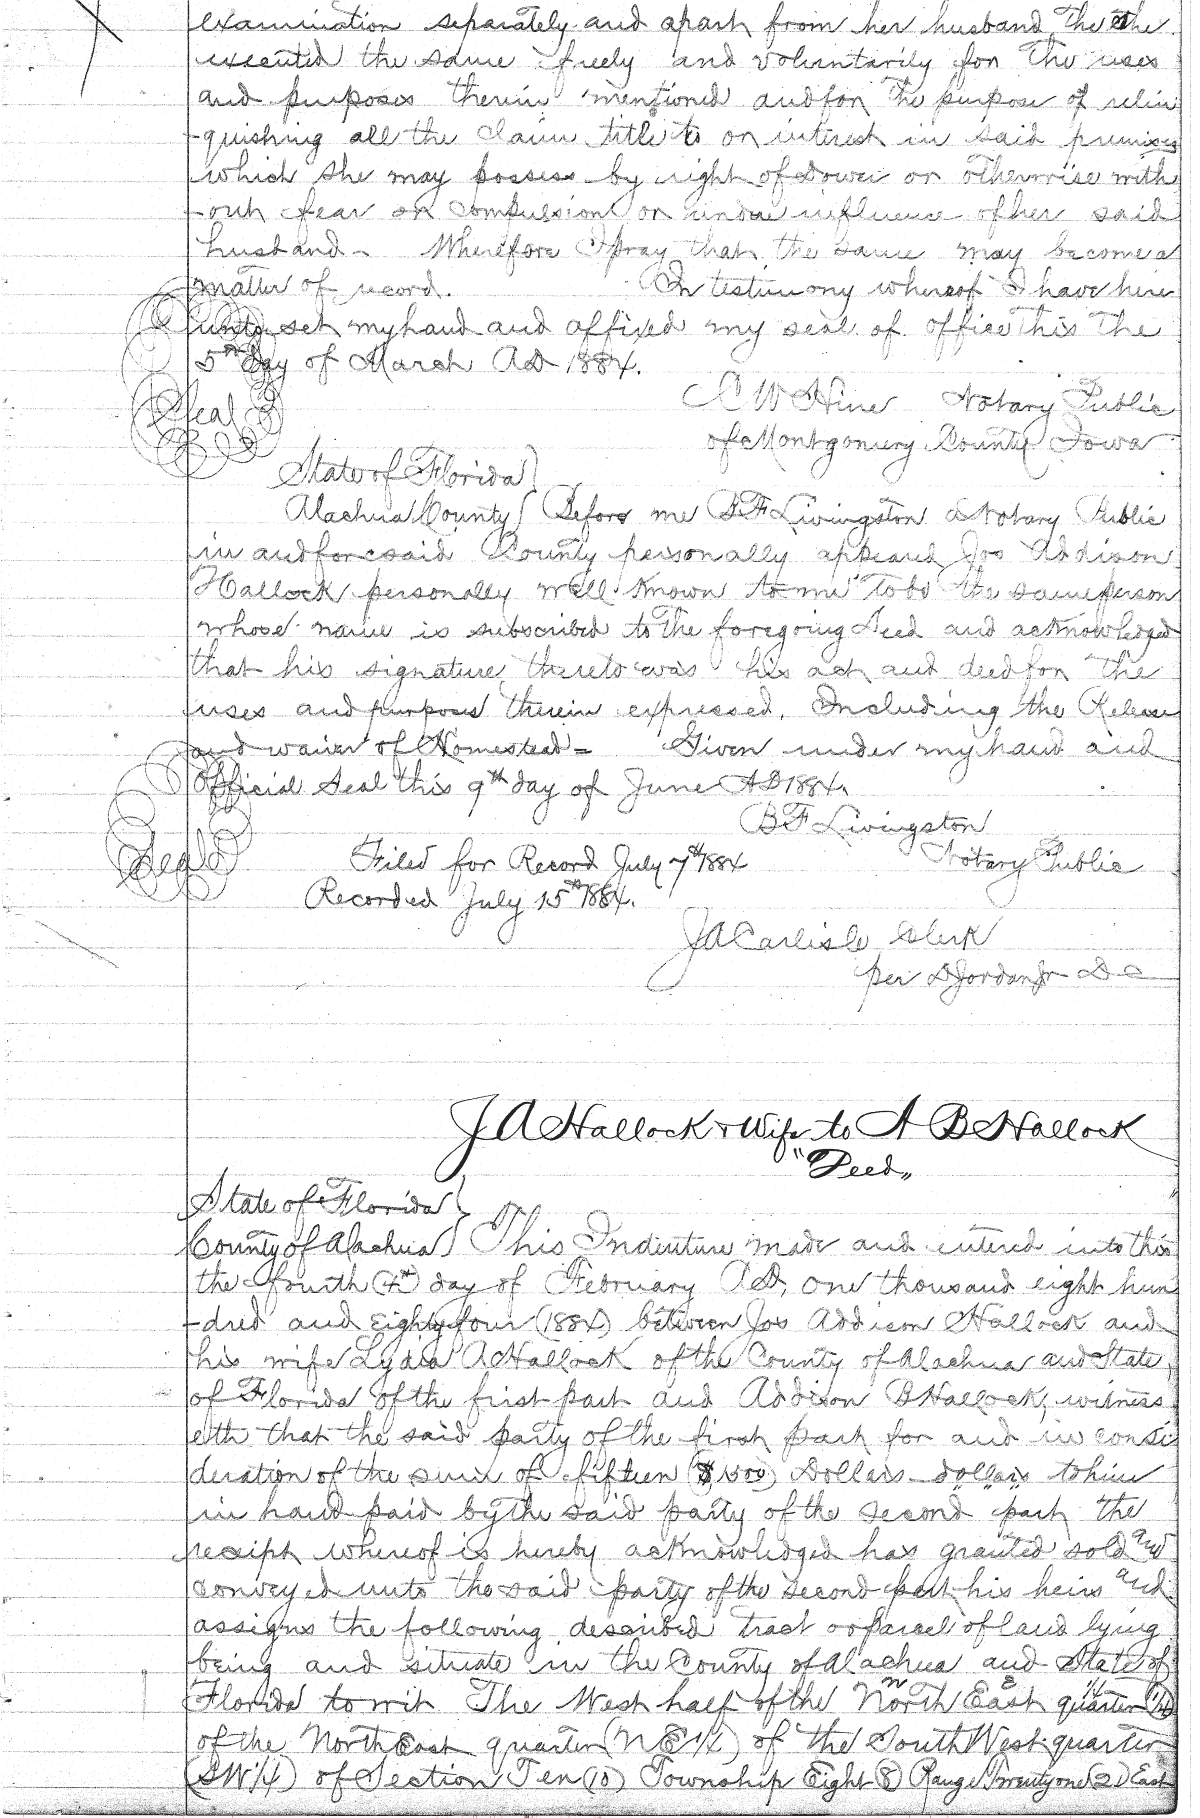 examination separately and apart from her husband the she
executed the same freely and voluntarily for the uses
and purposes therein mentioned and for the purpose of relin
-quishing all the claim title to or interest in said premises
which she may possess by right of Dower or otherwise with
-out fear or compulsion or undue influence of her said
husband - Wherefore I pray that the same may become a
matter of record. In testimony whereof I have here
unto set my hand and affixed my seal of office this the
5th day of March AD 1884.
Seal C W Hiner Notary Public
of Montgomery County Iowa
State of Florida
Alachua County Before me B F Livingston a Notary Public
in and for said County personally appeared Jos Addison
Hallock personally well known to me to be the same person
whose name is subscribed to the foregoing Deed and acknowledged
that his signature thereto was his act and deed for the
uses and purposes therein expressed, Including the Release
and waiver of Homestead = Given under my hand and
Official Seal this 9th day of June AD 1884.
B F Livingston
Seal Filed for Record July 7th 1884 Notary Public
Recorded July 15th 1884.
J A Carlisle Clerk
per D Jordan Jr D C
J A Hallock & Wife to A B Hallock
"Deed"
State of Florida
County of Alachua This Indenture made and entered into this
the fourth (4th) day of February AD, one thousand eight hun
-dred and Eighty four (1884) between Jos Addison Hallock and
his wife Lydia A Hallock of the County of Alachua and State
of Florida of the first part and Addison B Hallock, witness
eth that the said party of the first part for and in consi
deration of the sum of fifteen ($1500) Dollars dollars to him
in hand paid by the said party of the second part the
receipt whereof is hereby acknowledged has granted sold and
conveyed unto the said party of the second part his heirs and
assigns the following described tract or parcel of land lying
being and situate in the County of Alachua and State of
Florida to wit The West half of the North East quarter (1/4)
of the North East quarter (N E 1/4) of the South West quarter
(SW 1/4) of Section Ten (10) Township Eight (8) Range Twenty one (21) East